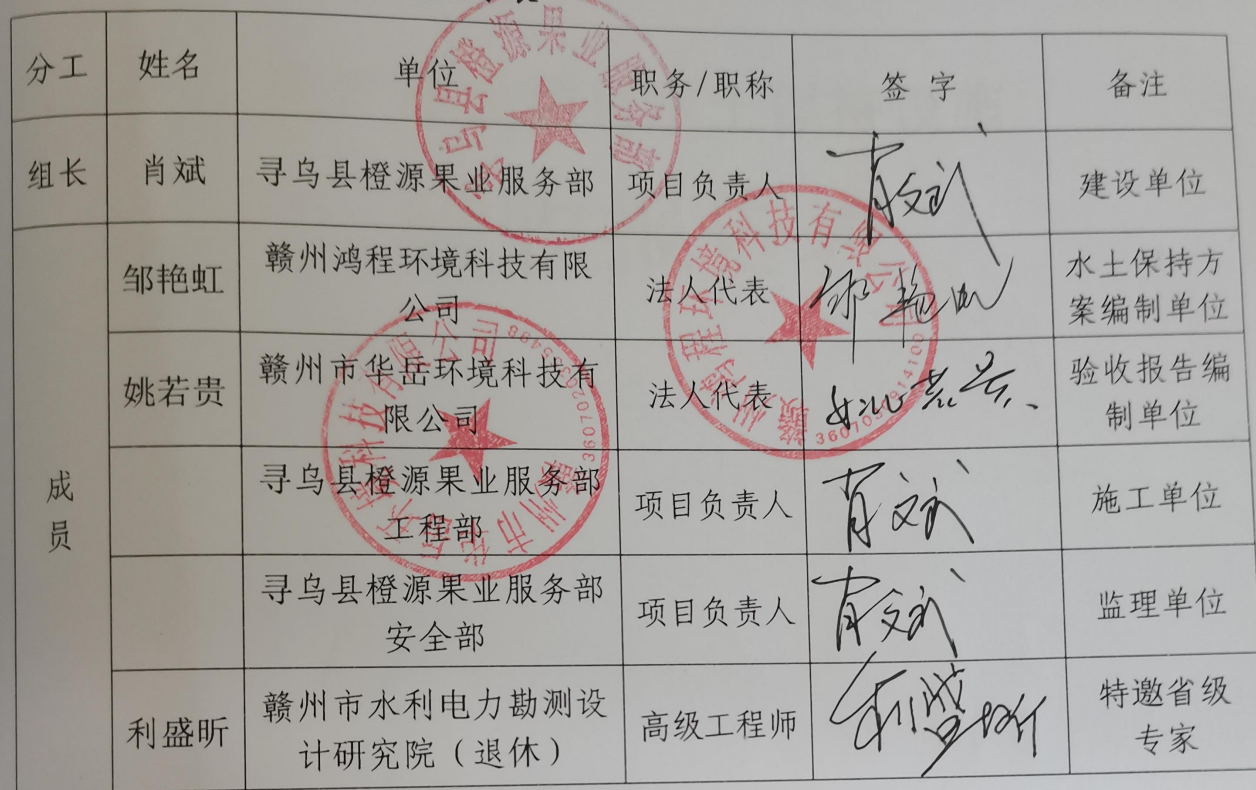 分工 姓名 单位 职务/职称 签字 备注
组长 肖斌 寻乌县橙源果业服务部 项目负责人 肖斌 建设单位
成员
邹艳虹 赣州鸿程环境科技有限公司 法人代表 邹艳虹 水土保持方案编制单位
姚若贵 赣州市华岳环境科技有限公司 法人代表 姚若贵 验收报告编制单位
寻乌县橙源果业服务部工程部 项目负责人 肖斌 施工单位
寻乌县橙源果业服务部安全部 项目负责人 肖斌 监理单位
利盛昕 赣州市水利电力勘测设计研究院（退休） 高级工程师 利盛昕 特邀省级专家
寻乌县橙源果业服务部
赣州鸿程环境科技有限公司
赣州市华岳环境科技有限公司